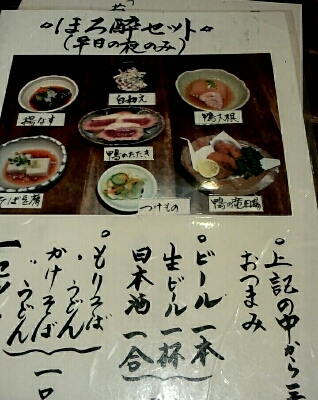 ほろ酔セット
(平日の夜のみ)
揚なす
白和え
鴨大根
鴨のたたき
そば豆腐
つけもの
鴨の竜田揚
上記の中から三
おつまみ
ビール 一本
生ビール 一杯
日本酒 一合
もりそば
〃 うどん
かけそば
〃 うどん